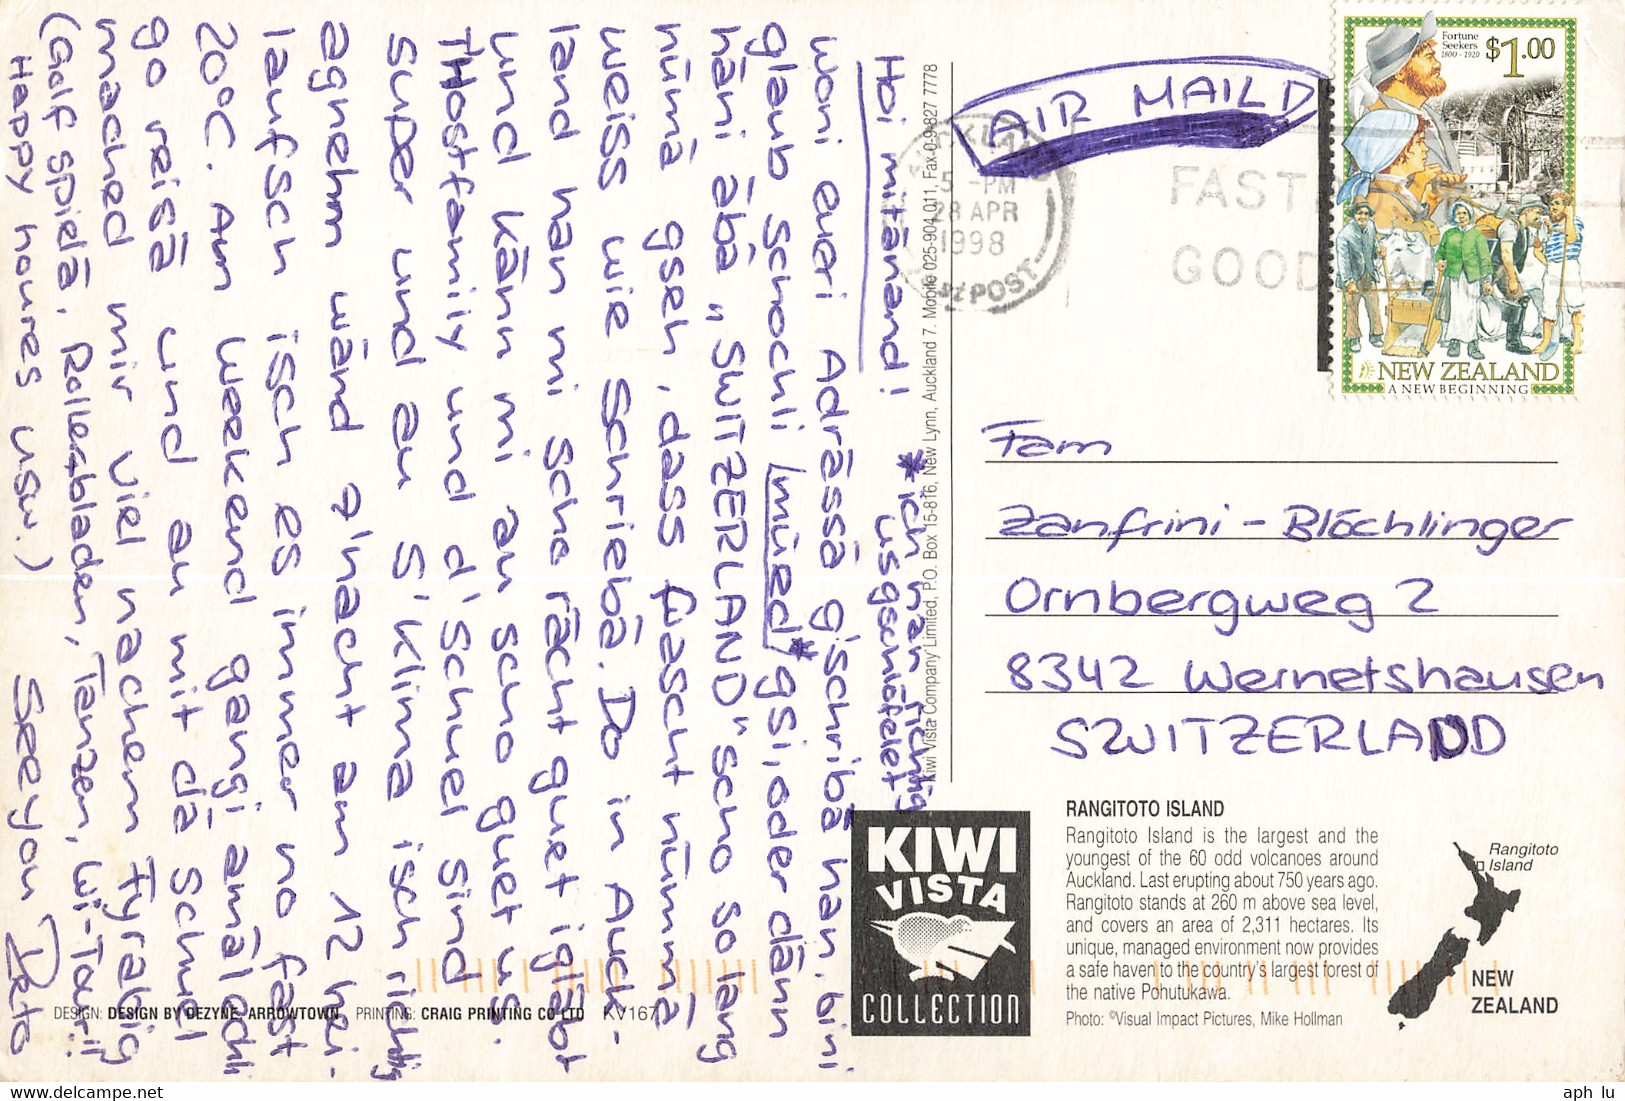 Hoi mitänand!
* ich han richtig
usgsumfelet
woni eueri Adrässä g'schribä han, bini
glaub schochli müed* gsi, oder dänn
häni äbä „SWITZERLAND" scho so lang
nümä gseh, dass fascht nümmä
weiss wie schriebä. Do in Auck-
land han mi scho rächt guet igläbt
und känn mi au scho guet us.
Hostfamily und d'Schuel sind
super und au s'Klima isch richtig
agnehm wänd z'nacht am 12 hei-
laufsch isch es immer no fast
20°C. Am weekend gangi amäl echli
go reisä und au mit dä Schuel
mached mir viel nachem Fyrabig
(Golf spielä, Rollerbladen, Tanzen, Wi-Tour!!
Happy houres usw.) See you Reto
AIR MAIL
AUCKLAND
5 - PM
28 APR
1998
NZ POST
FAST
GOOD
Fortune
Seekers
1800 - 1920
$1.00
NEW ZEALAND
A NEW BEGINNING
Fam
Zanfrini - Blöchlinger
Ornbergweg 2
8342 Wernetshausen
SWITZERLAND
Kiwi Vista Company Limited, P.O. Box 15-816, New Lynn, Auckland 7. Mobile 025-904-011, Fax-0-9-827 7778
KIWI
VISTA
COLLECTION
RANGITOTO ISLAND
Rangitoto Island is the largest and the
youngest of the 60 odd volcanoes around
Auckland. Last erupting about 750 years ago.
Rangitoto stands at 260 m above sea level,
and covers an area of 2,311 hectares. Its
unique, managed environment now provides
a safe haven to the country's largest forest of
the native Pohutukawa.
Photo: ©Visual Impact Pictures, Mike Hollman
Rangitoto
Island
NEW
ZEALAND
DESIGN: DESIGN BY DEZYNE, ARROWTOWN PRINTING: CRAIG PRINTING CO LTD KV167
aph lu